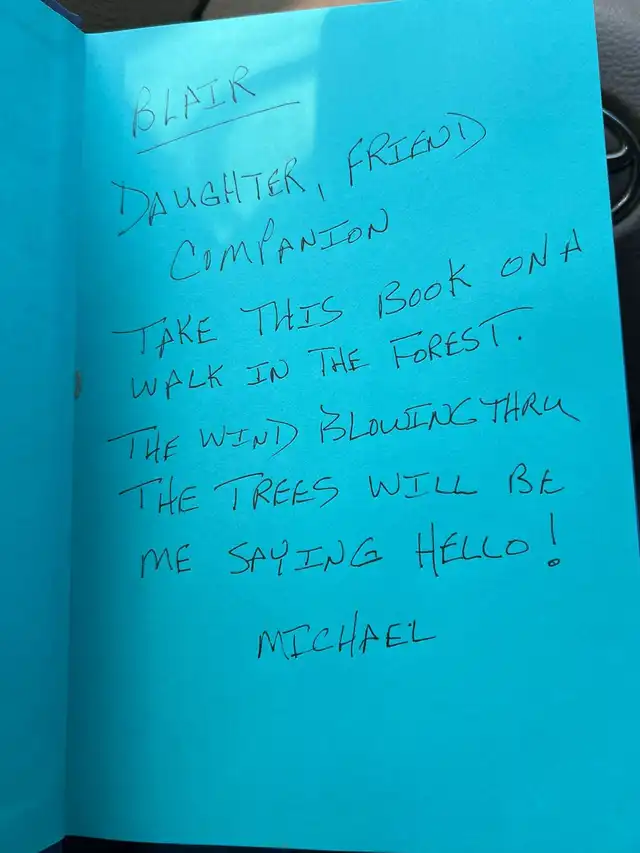 BLAIR
DAUGHTER, FRIEND
COMPANION
TAKE THIS BOOK ON A
WALK IN THE FOREST.
THE WIND BLOWING THRU
THE TREES WILL BE
ME SAYING HELLO!
MICHAEL